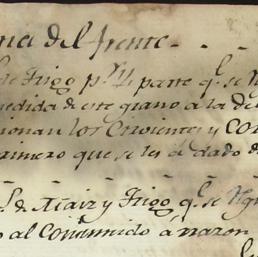 del frente
de Trigo p.r parte q.e se
medida de este grano a la de
los Sirvientes y
primero que se les a dado
de Maiz y Trigo q.e se
al Consumido á razon